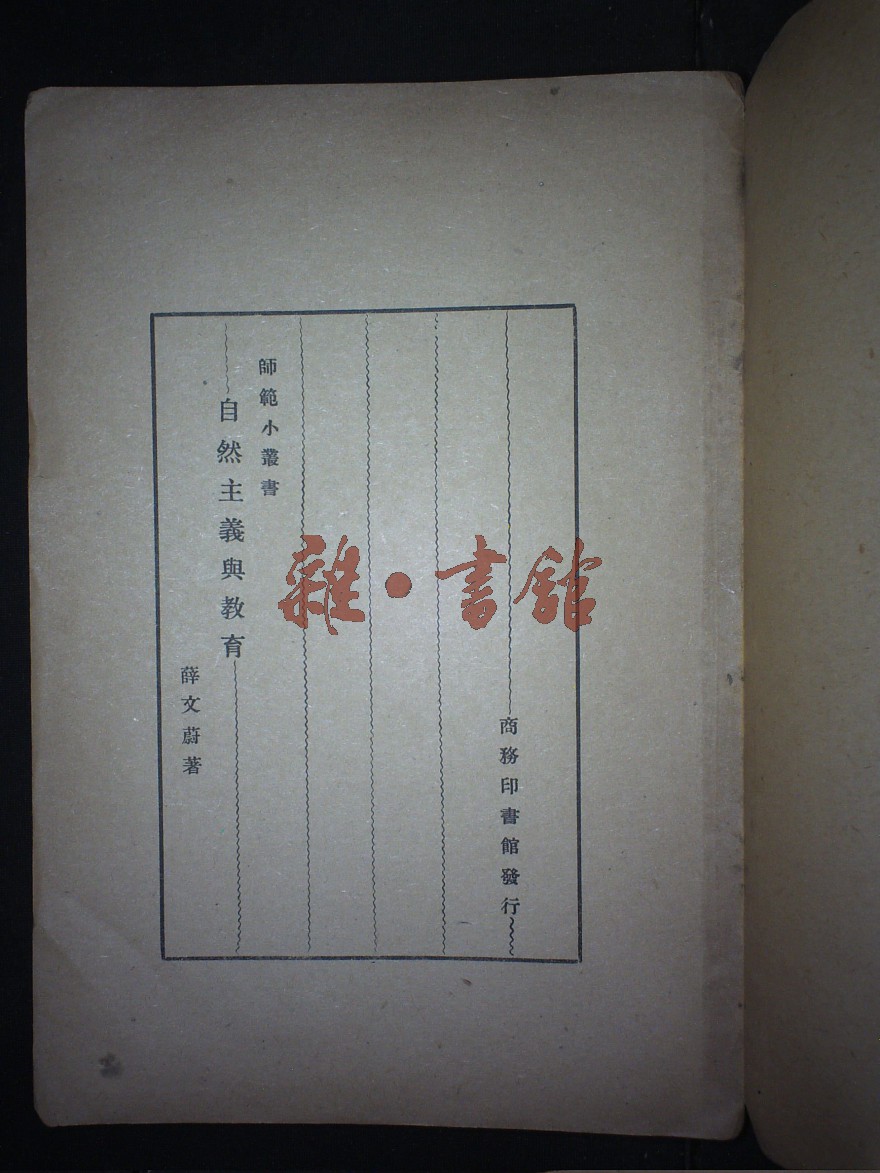 商務印書館發行
師範小叢書
自然主義與教育
薛文蔚著
雜·書館